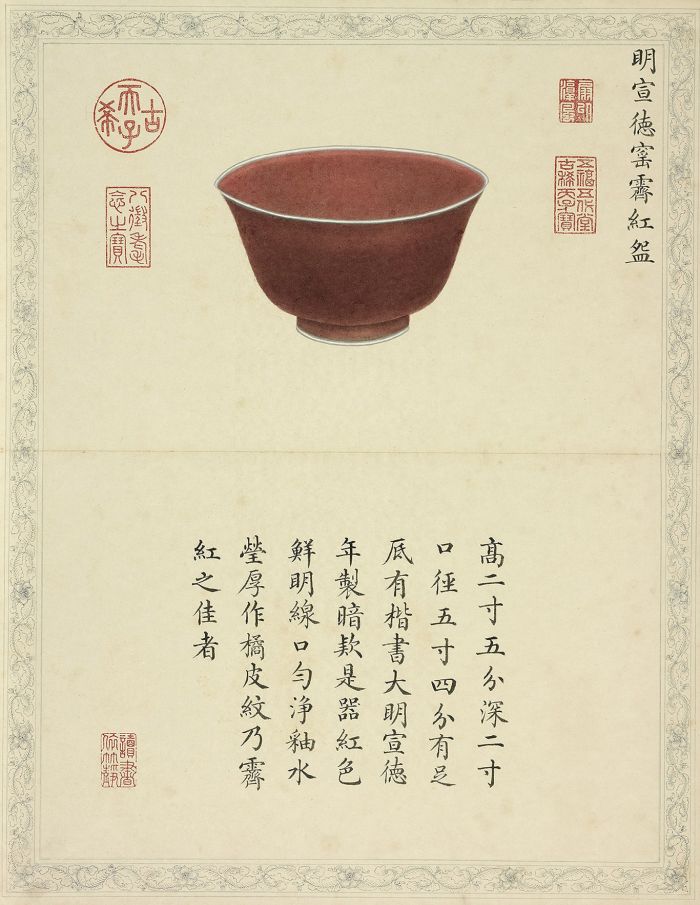 明宣徳窰霽紅盌
五福五代堂古稀天子寶
古希天子
八徵耄念之寶
髙二寸五分深二寸
口徑五寸四分有足
底有楷書大明宣徳
年製暗欵是器紅色
鮮明線口勻淨釉水
瑩厚作橘皮紋乃霽
紅之佳者